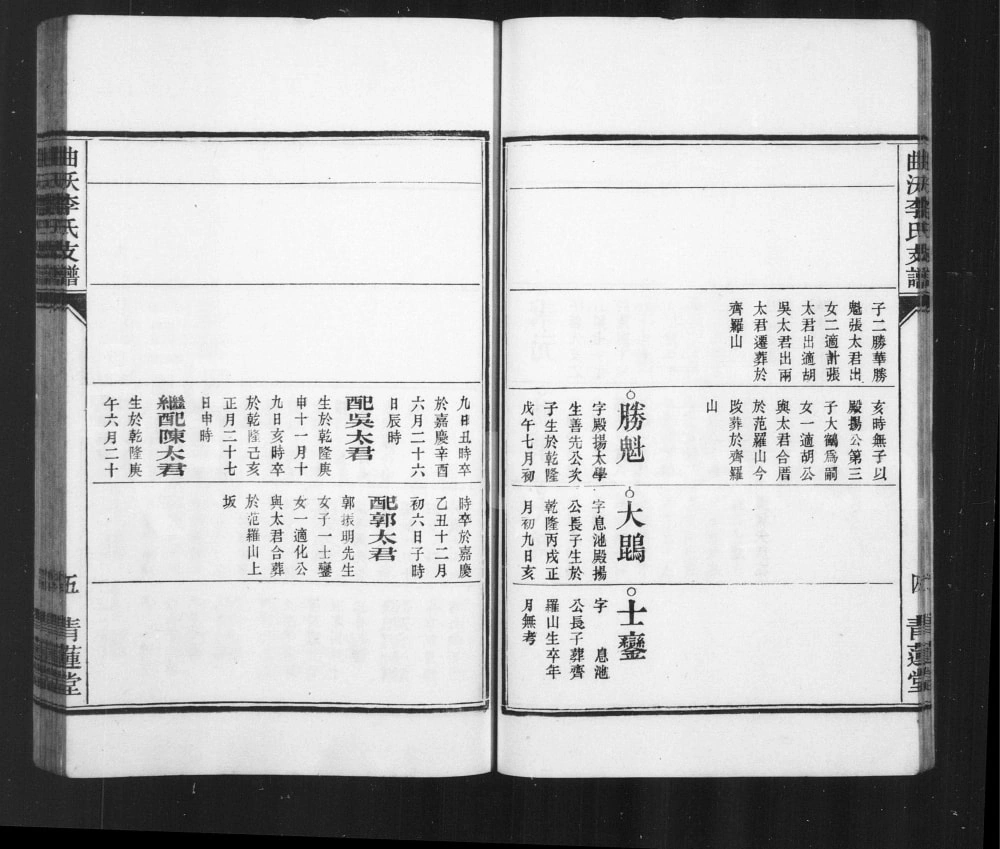 曲沃李氏支譜
子二勝華勝
魁張太君出
女二適計張
太君出適胡
吳太君出兩
太君遷葬於
齊羅山
亥時無子以
殿揚公第三
子大鶴爲嗣
女一適胡公
與太君合厝
於范羅山今
改葬於齊羅
山
勝魁
字殿揚太學
生善先公次
子生於乾隆
戊午七月初
大鵾
字息池殿揚
公長子生於
乾隆丙戌正
月初九日亥
士鑾
字 息池
公長子葬齊
羅山生卒年
月無考
青蓮堂
九日丑時卒
於嘉慶辛酉
六月二十六
日辰時
配吳太君
生於乾隆庚
申十一月十
九日亥時卒
於乾隆己亥
正月二十七
日申時
繼配陳太君
生於乾隆庚
午六月二十
時卒於嘉慶
乙丑十二月
初六日子時
配郭太君
郭振明先生
女子一士鑾
女一適化公
與太君合葬
於范羅山上
坂
曲沃李氏支譜
五
青蓮堂